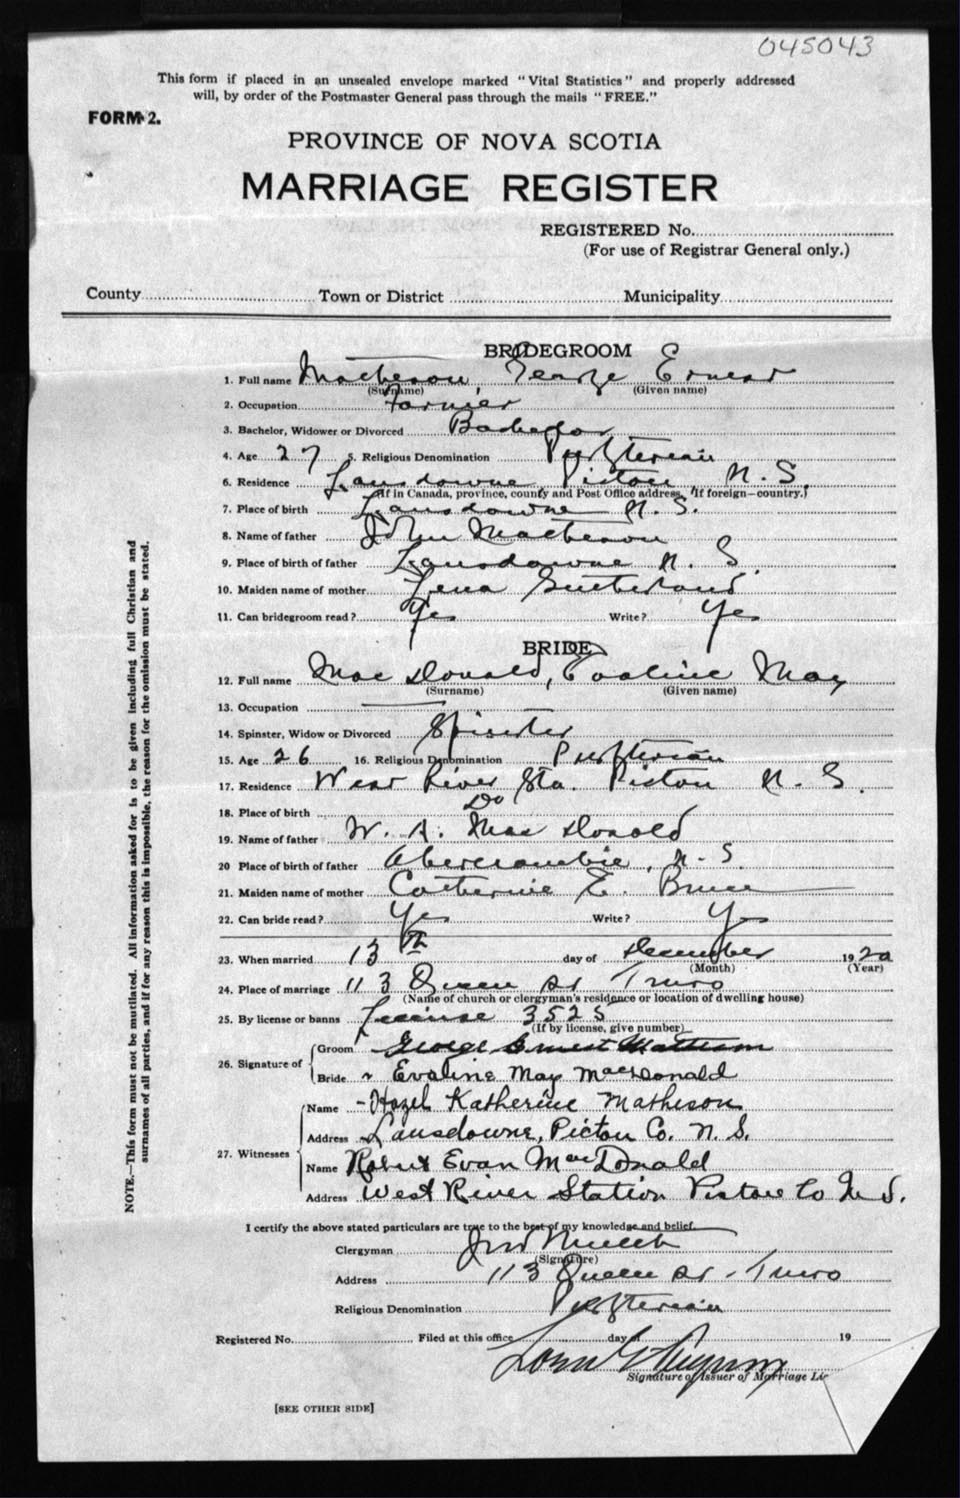 045043
This form if placed in an unsealed envelope marked "Vital Statistics" and properly addressed
will, by order of the Postmaster General pass through the mails "FREE."
FORM 2.
PROVINCE OF NOVA SCOTIA
MARRIAGE REGISTER
REGISTERED No.
(For use of Registrar General only.)
County Town or District Municipality
BRIDEGROOM
1. Full name Matheson, George Ernest
(Surname) (Given name)
2. Occupation Farmer
3. Bachelor, Widower or Divorced Bachelor
4. Age 27 5. Religious Denomination Presbyterian
6. Residence Lansdowne, Pictou N.S.
(If in Canada, province, county and Post Office address. If foreign—country.)
7. Place of birth Lansdowne N.S.
8. Name of father John Matheson
9. Place of birth of father Lansdowne N.S.
10. Maiden name of mother Lena Sutherland
11. Can bridegroom read? Yes Write? Yes
BRIDE
12. Full name MacDonald, Evaline May
(Surname) (Given name)
13. Occupation
14. Spinster, Widow or Divorced Spinster
15. Age 26 16. Religious Denomination Presbyterian
17. Residence West River Sta. Pictou N.S.
18. Place of birth Do
19. Name of father W. A. MacDonald
20 Place of birth of father Abercrombie, N.S
21. Maiden name of mother Catherine E. Bruce
22. Can bride read? Yes Write? Yes
23. When married 13th day of December 1920
(Month) (Year)
24. Place of marriage 113 Queen St Truro
(Name of church or clergyman's residence or location of dwelling house)
25. By license or banns License 3525
(If by license, give number)
26. Signature of Groom George Ernest Matheson
Bride Evaline May MacDonald
27. Witnesses Name Hazel Katherine Matheson
Address Lansdowne, Pictou Co. N.S.
Name Robert Evan MacDonald
Address West River Station Pictou Co N.S.
I certify the above stated particulars are true to the best of my knowledge and belief.
Clergyman
(Signature)
Address 113 Queen St. Truro
Religious Denomination Presbyterian
Registered No. Filed at this office day of 19
Signature of Issuer of Marriage Lic
[SEE OTHER SIDE]
NOTE.—This form must not be mutilated. All information asked for is to be given including full Christian and
surnames of all parties, and if for any reason this is impossible, the reason for the omission must be stated.